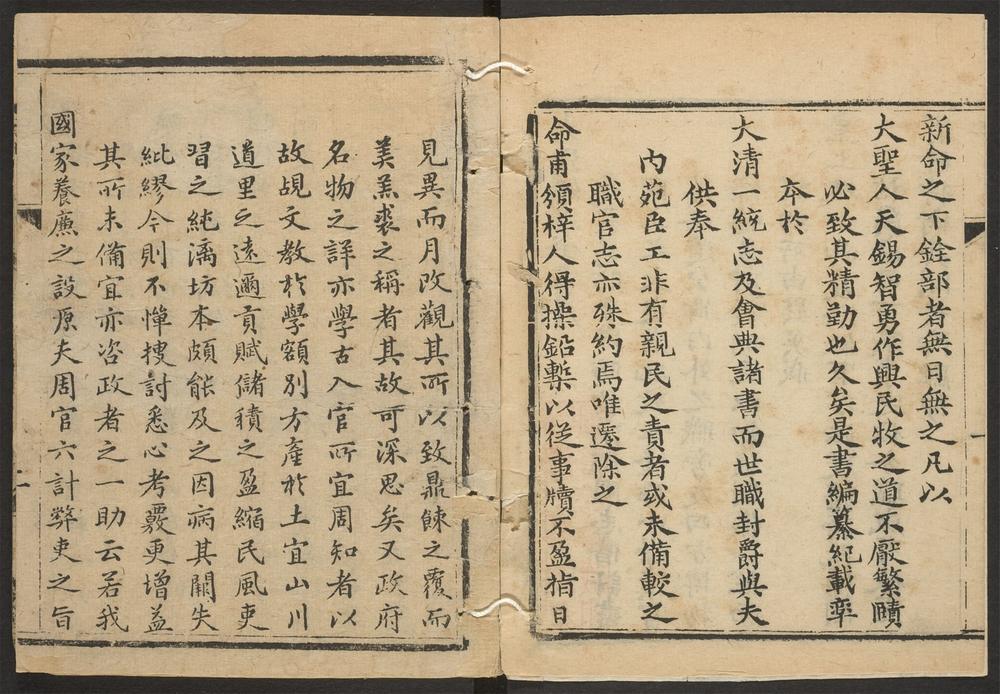 新命之下銓部者無日無之凡以
大聖人天錫智勇作興民牧之道不厭繁賾
必致其精勤也久矣是書編纂紀載率
本於
大清一統志及會典諸書而世職封爵與夫
內苑臣工非有親民之責者或未備較之
供奉
職官志亦殊約焉唯遷除之
命甫頒梓人得操鉛槧以從事牘不盈指日
見異而月改觀其所以致鼎餗之覆而
美羔裘之稱者其故可深思矣又政府
名物之詳亦學古入官所宜周知者以
故覘文教於學額別方產於土宜山川
道里之遠邇貢賦儲積之盈縮民風吏
習之純漓坊本頗能及之因病其闕失
紕繆今則不憚搜討悉心考覈更增益
其所未備宜亦咨政者之一助云若我
國家養廉之設原夫周官六計弊吏之旨